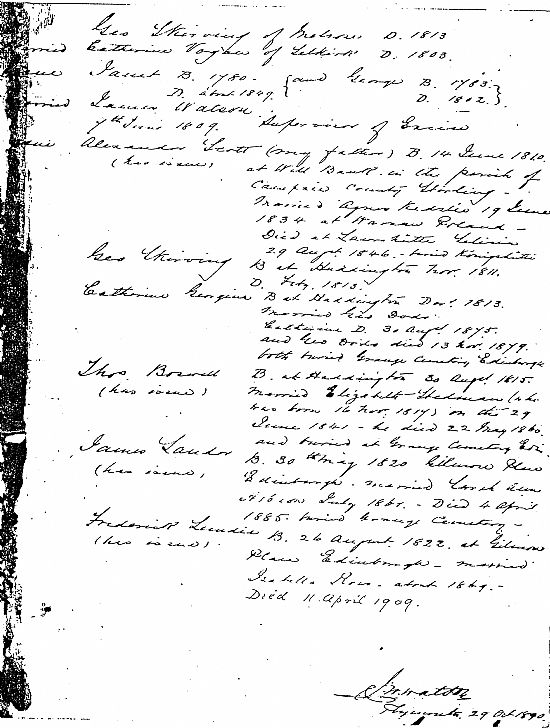 Geo Skirving of Melrose D. 1813
married Catherine Vogan of Selkirk D. 1803.
issue Janet B. 1780. {and George B. 1783.}
D. abt. 1849. { D. 1802.}
married James Watson
7th June 1809. Supervisor of Excise
issue Alexander Scott (my father) B. 14 June 1810.
(has issue) at Well Bank in the parish of
Campsie County Stirling -
Married Agnes Kedslie 19 June
1834 at Warsaw Poland -
Died at Silesia
29 Augt. 1846 - buried
Geo Skirving B at Haddington Nov. 1811.
D. Feby. 1813.
Catherine Georgina B at Haddington Decr. 1813.
Married Geo Dods.
Catherine D. 30 Augt. 1875.
and Geo Dods died 13 Nov. 1879.
both buried Grange Cemetery Edinburgh
Thos Boswell B. at Haddington 30 Augt. 1815.
(has issue) Married Elizabeth Stedman (who
was born 16 Nov. 1817) on the 29
June 1841 - he died 22 May 1860
and buried at Grange Cemetery Edin.
James B. 30th May 1820 Gilmore Place
(has issue) Edinburgh. married Sarah Ann
July 1861. - Died 4 April
1885. buried Grange Cemetery -
Frederick Leudie B. 26 August 1822. at Gilmore
(has issue) Place Edinburgh - married
Isabella about 1849. -
Died 11 April 1909.
Watson
Plymouth, 29 Oct